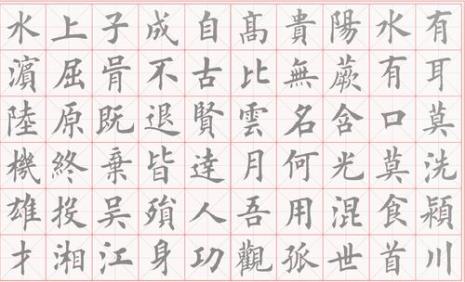 有耳莫洗潁川
水有口莫食首
陽蕨含光混世
貴無名何用孤
髙比雲月吾觀
自古賢達人功
成不退皆殞身
子胥既棄吴江
上屈原終投湘
水濵陸機雄才